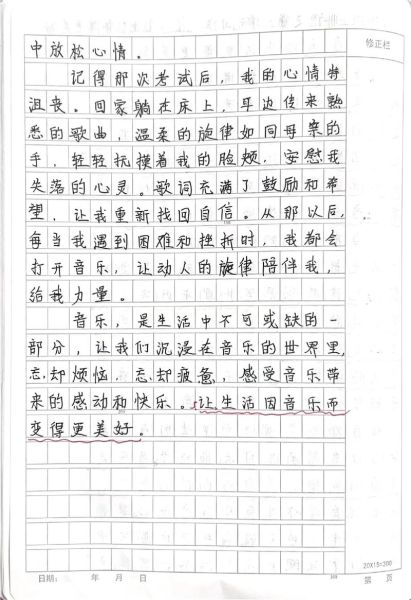 修正栏
中放松心情。
记得那次考试后，我的心情特
沮丧。回家躺在床上，耳边传来熟
悉的歌曲，温柔的旋律如同母亲的
手，轻轻抚摸着我的脸颊，安慰我
失落的心灵。歌词充满了鼓励和希
望，让我重新找回自信。从那以后，
每当我遇到困难和挫折时，我都会
打开音乐，让动人的旋律陪伴我，
给我力量。
音乐，是生活中不可或缺的一
部分，让我们沉浸在音乐的世界里，
忘却烦恼，忘却疲惫，感受音乐带
来的感动和快乐。让生活因音乐而
变得更美好。
20X15=300
日期： 年 月 日 第 页